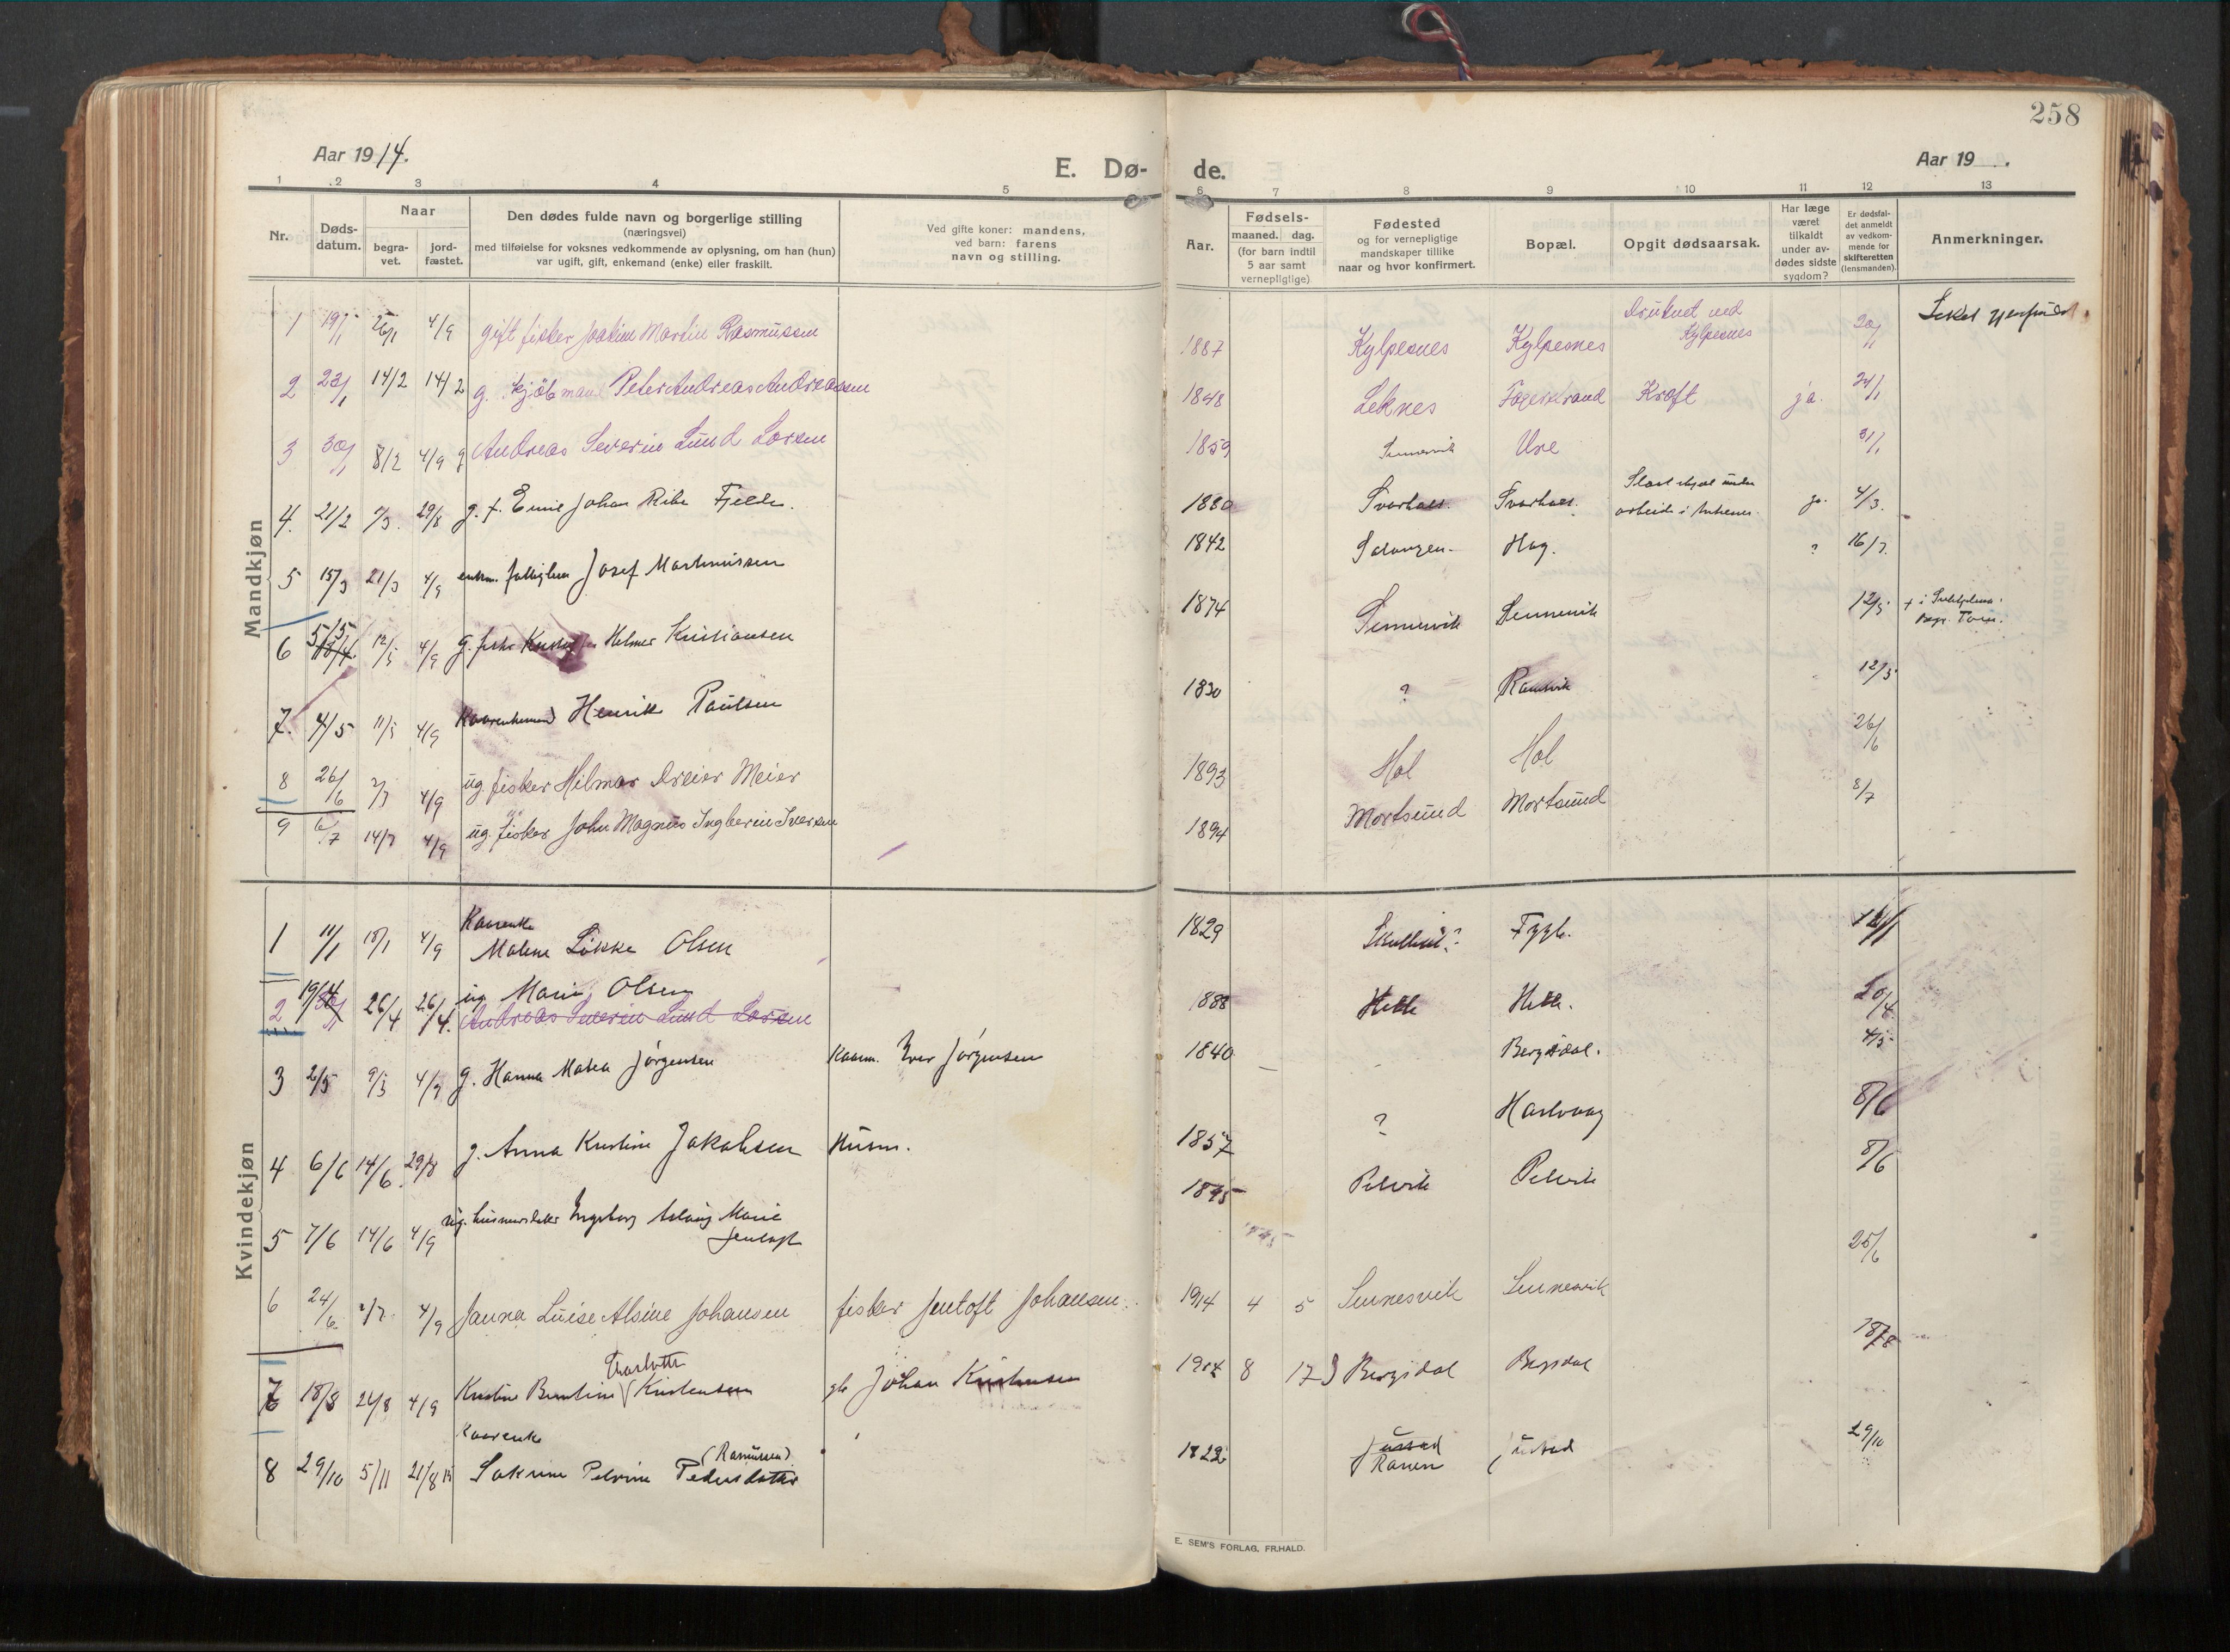 258
Aar 1914.
E. Dø- de.
Aar 19 .
1 2 3 4 5 6 7 8 9 10 11 12 13
Nr.
Døds-
datum.
Naar
begra-
vet.
jord-
fæstet.
Den dødes fulde navn og borgerlige stilling
(næringsvei)
med tilføielse for voksnes vedkommende av oplysning, om han (hun)
var ugift, gift, enkemand (enke) eller fraskilt.
Ved gifte koner: mandens,
ved barn: farens
navn og stilling.
Aar.
Fødsels-
maaned. dag.
(for barn indtil
5 aar samt
vernepligtige)
Fødested
og for vernepligtige
mandskaper tillike
naar og hvor konfirmert.
Bopæl.
Opgit dødsaarsak.
Har læge
været
tilkaldt
under av-
dødes sidste
sygdom?
Er dødsfal-
det anmeldt
av vedkom-
mende for
skifteretten
(lensmanden).
Anmerkninger.
Mandkjøn
1 19/1 26/1 4/9 gift fisker Joakim Martin Rasmussen 1887 Kylpesnes Kylpesnes Druknet ved Kylpesnes 20/1
2 23/1 14/2 14/2 g. kjøbmand Peter Andreas Andreassen 1848 Leknes Fagerstrand Kræft ja. 24/1
3 30/1 8/2 4/9 g Andreas Severin Lund Larsen 1859 Sennesvik Ure 31/1
4. 21/2 29/8 g. f. Emil Johan Ribe Fjelde. 1880 Svarholt. Svarholt. ja. 4/3.
5 15/3 21/3 4/9 enkm. Josef Martinussen 1842 Salangen. Hag. ?
6 5/5 12/5 4/9 g. Helmer Kristiansen 1874 Sennesvik Sennesvik 12/5
7. 4/5 11/5 4/9 Henrik Paulsen 1830 ? Ramsvik 12/5
8 26/6 2/7 4/9 ug. fisker Hilmar Dreier Meier 1893 Hol Hol 26/6
9 6/7 14/7 4/9 ug. fisker John Magnus Ingberin Iversen 1894 Mortsund Mortsund 8/7
Kvindekjøn
1 11/1 18/1 4/9 Kaarenke
Malene Løkke Olsen 1829 Fygle.
2 19/4 26/4 26/4. ug. Marie Olsen 1888 Helle Helle. 20/4
Andreas Severin Lund Larsen
3 2/5 9/5 4/9 g. Hanna Matea Jørgensen Kaarm. Iver Jørgensen 1840 - Bergsdal. 4/5
4 6/6 14/6. 29/8 g. Anna Kristine Jakobsen Husm. 1857 ? Hartvaag 8/6
5 7/6 14/6 4/9 ug. husmorsdatter Ingeborg Aslaug Marie
Jentoft 1895 Petvik Petvik 8/6
6 24/6 2/7. 4/9 Janna Luise Alsine Johansen fisker Jentoft Johansen. 1914 4 5 Sennesvik Sennesvik 25/6
7 18/8 24/8 4/9 Kristine Berntine Charlotte Kristensen Johan Kristensen 1914 8 17 Bergsdal Bergsdal 18/8
8 29/10 5/11 21/8 15 Kaarenke
Petrine Pedersdatter (Rasmussen) 1822 Justad
Ranen Justad 29/10
E. SEM'S FORLAG, FR.HALD.